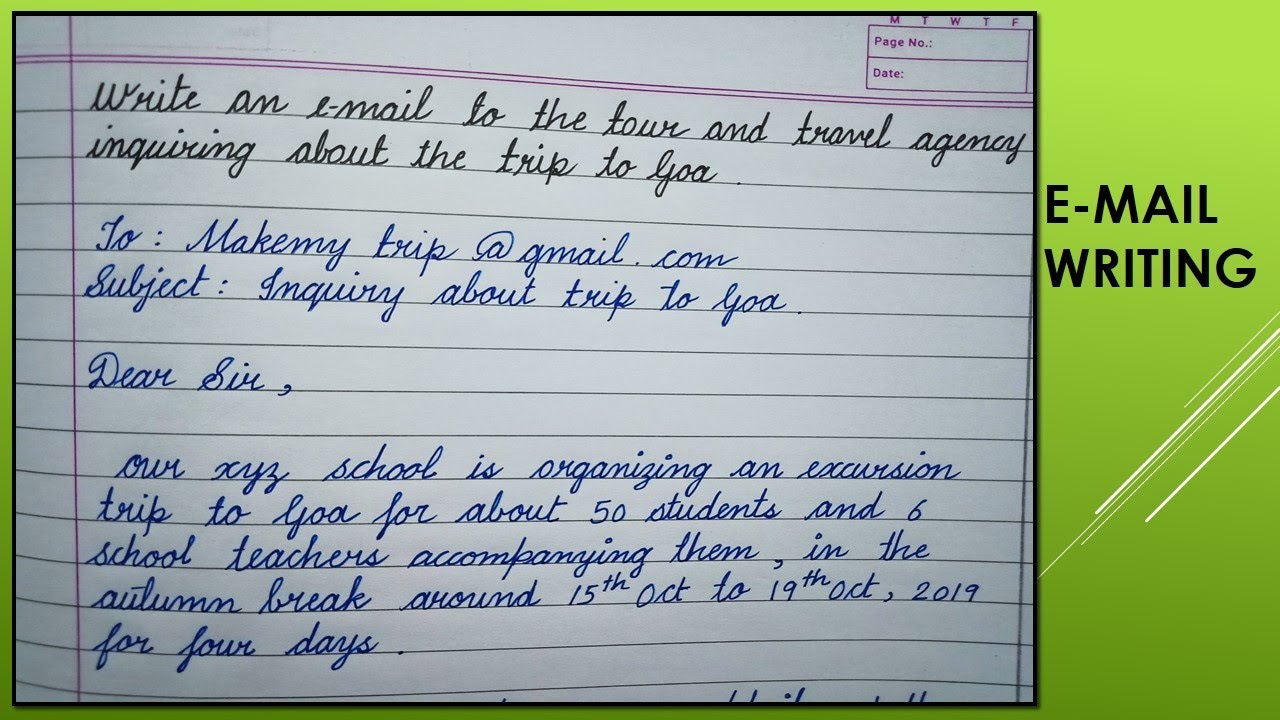 M T W T F
Page No.:
Date:
Write an e-mail to the tour and travel agency
inquiring about the trip to Goa.
To : Makemy trip @ gmail. com
Subject : Inquiry about trip to Goa.
Dear Sir,
our xyz school is organizing an excursion
trip to Goa for about 50 students and 6
school teachers accompanying them, in the
autumn break around 15th Oct to 19th Oct, 2019
for four days.
E-MAIL
WRITING